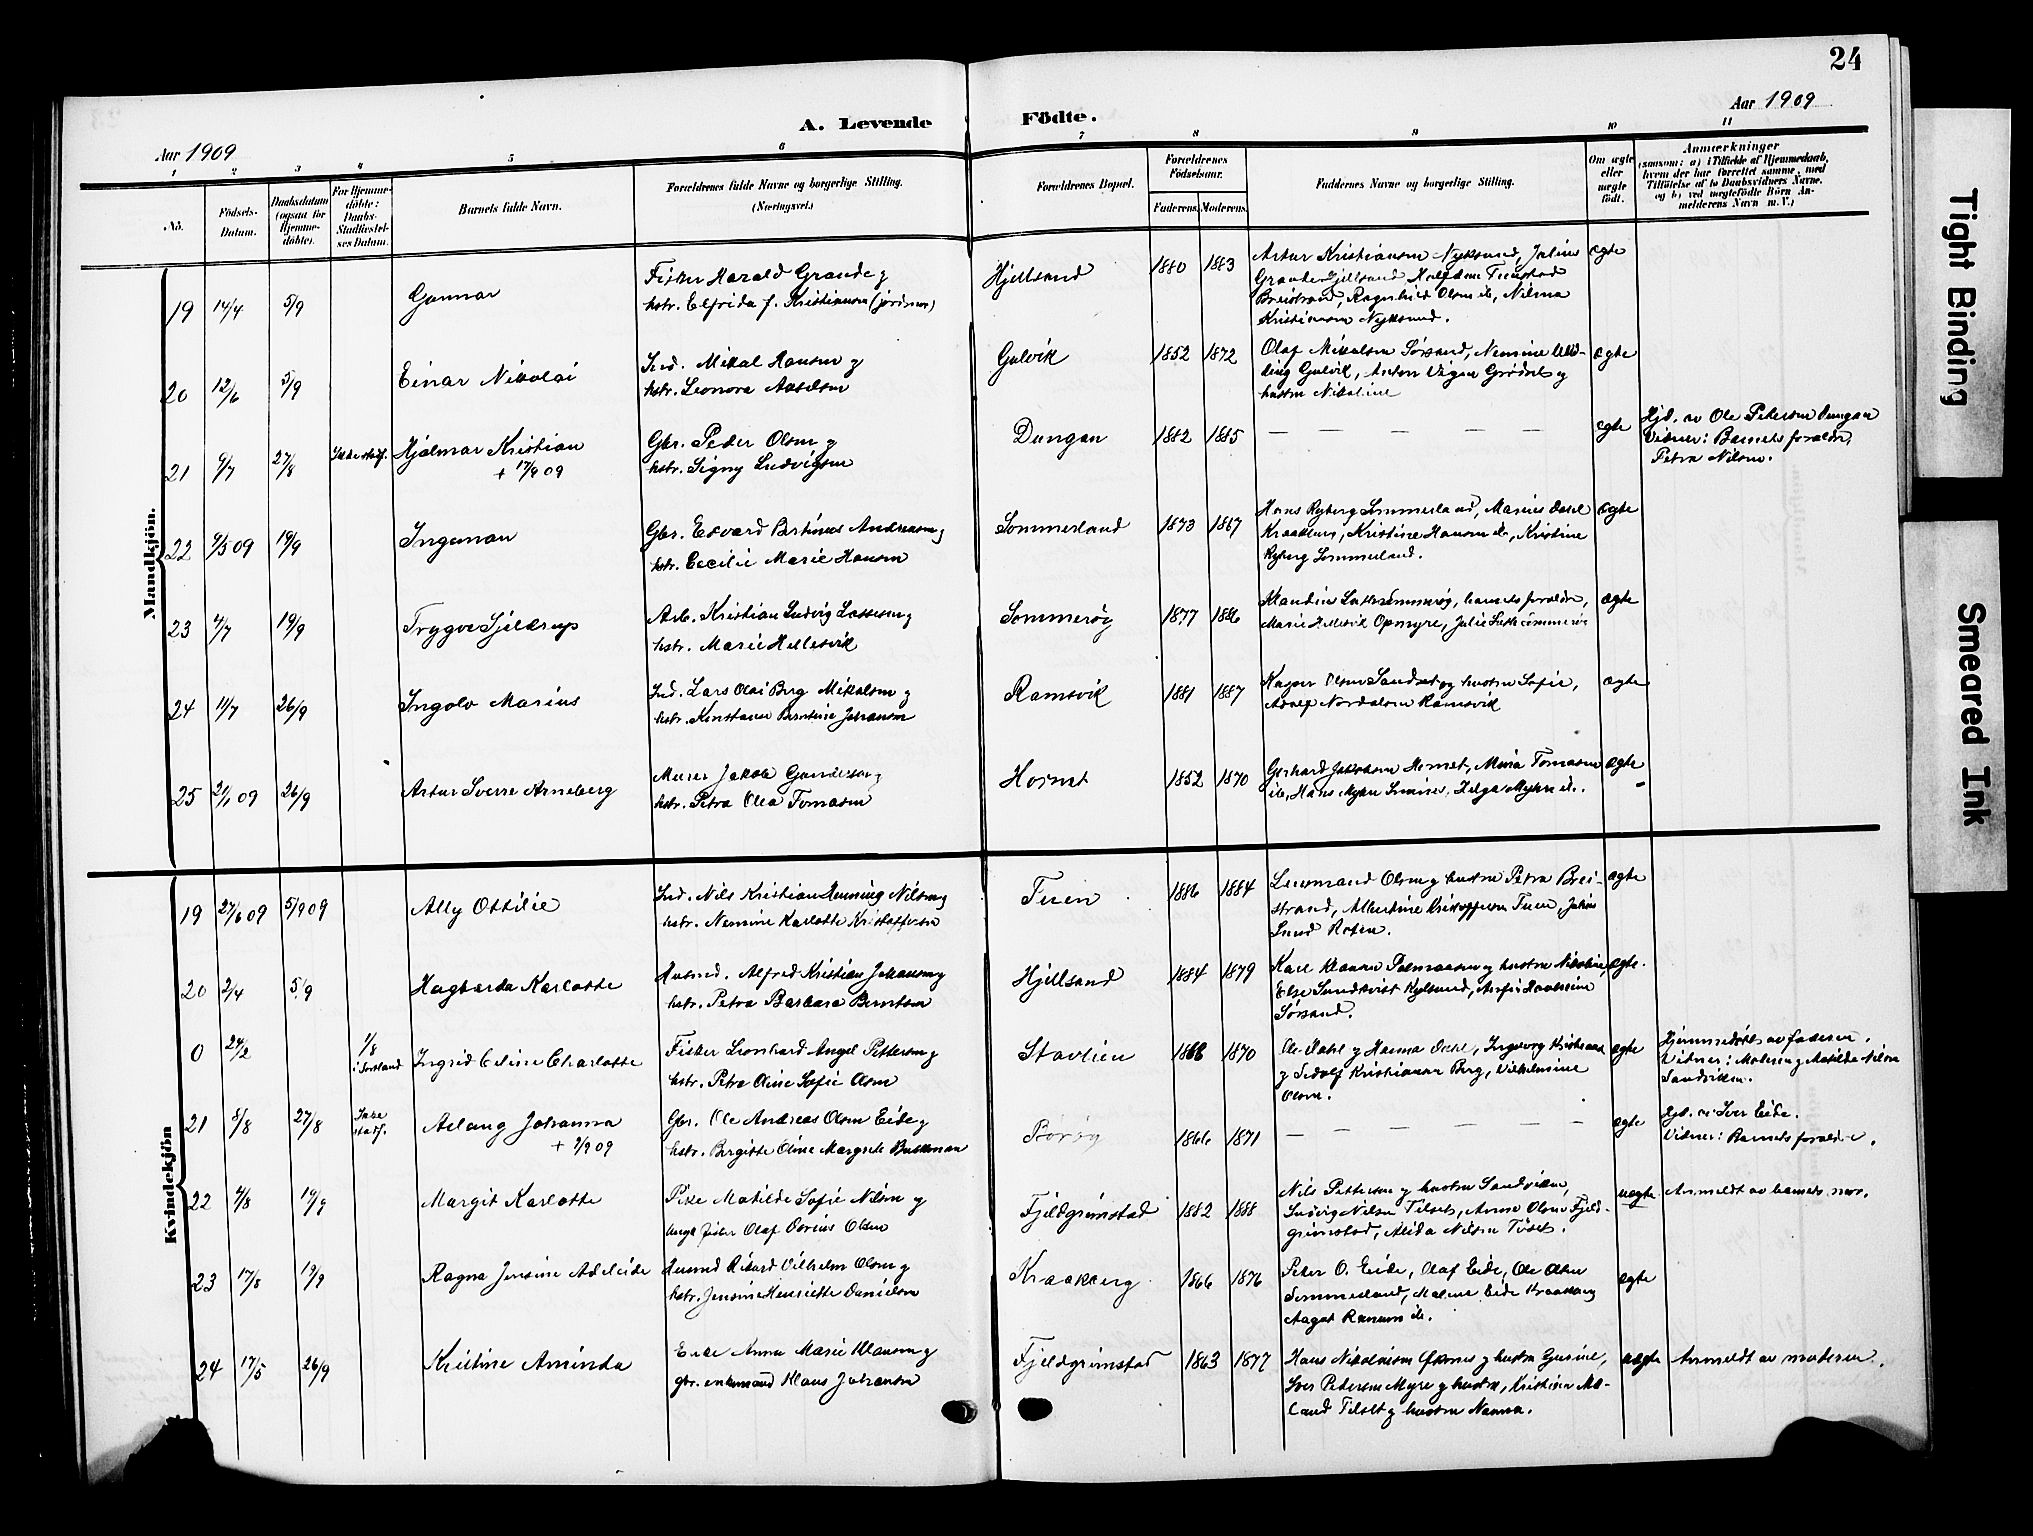 24
Aar 1909
Aar 1909
A. Levende Födte.
1 2 3 4 5 6 7 8 9 10 11
No.
Födsels-Datum.
Daabsdatum (ogsaa for Hjemme-döbte).
For Hjemme-döbte: Daabs-Stadfæstel-ses Datum.
Barnets fulde Navn.
Forældrenes fulde Navne og borgerlige Stilling.
(Næringsvei.)
Forældrenes Bopæl.
Forældrenes Födselsaar.
Faderens. Moderens.
Faddernes Navne og borgerlige Stilling.
Om ægte eller uægte födt.
Anmærkninger
(saasom: a) i Tilfælde af Hjemmedaab, hvem der har forrettet samme, med Tilföielse af to Daabsvidners Navne, og b) ved uægtefödte Börn An-melderens Navn m. V.)
Mandkjön.
19 14/4 5/9 Gunnar
Fisker Harald Grande og
hstr. Elfrida f. Kristiansen (jordmor)
Hjellsand 1880 1883
Artur Kristiansen Nyksund, Juline
Grande Hjellsand, Halfdan Tunstad
Breistrand, Ragnhild Olsen ib, Nilma
Kristiansen Nyksund.
ægte
20 12/6 5/9 Einar Nikolai
Ind. Mikal Hansen og
hstr. Leonora Axelsen
Gulvik 1852 1872
Olaf Mikalsen Sørsand, Nemine
Gulvik, Anton Vigen Grødnes og
hustru Nikoline
ægte
21 9/7 27/8 Ikke stadf. Hjalmar Kristian
+ 17/9 09
Gbr. Peder Olsen og
hstr. Signy Ludvigsen
Dungan 1882 1885
— — — — —
ægte
Hjd. av Ole Petersen Dungan
Vidner: Barnets forældre,
Petra Nilsen.
22 9/5 09 19/9 Ingeman
Gbr. Edvard Bertinus Andreasen og
hstr. Cecilie Marie Hansen
Sommerland 1873 1867
Hans Ryberg Sommerland, Marius Dahl
Kraakberg, Kristine Hansen ib, Kristine
Ryberg Sommerland.
ægte
23 4/7 19/9 Trygve Sjeldrup
Arb. Kristian Ludvig Lassesen og
hstr. Marie Hellesvik
Sommerøy 1877 1886
Klaudius Sommerøy, barnets forældre,
Marie Hellesvik Opmyre, Julie Sommerøy
ægte
24 11/7 26/9 Ingolv Marius
Ind. Lars Olai Berg Mikalsen og
hstr. Konstanse Berntine Johansen
Ramsvik 1881 1887
Kasper Olsen Sandset og hustru Sofie,
Adolf Nordalsen Ramsvik
ægte
25 21/1 09 26/9 Artur Sverre Arneberg
Murer Jakob Gundersen og
hstr. Petra Olea Tomasen
Hornet 1852 1870
Gerhard Jakobsen Hornet, Mina Tomasen
ib, Hans Myhre Smines, Helga Myhre ib.
ægte
Kvindekjön
19 27/6 09 5/9 09 Ally Ottilie
Ind. Nils Kristian Henning Nilsen og
hstr. Nemine Karlotte Kristoffersen
Tuen 1886 1884
Lensmand Olsen og hustru Petra Brei-
strand, Albertine Kristoffersen Tuen, Julius
Lund Roten.
ægte
20 2/4 5/9 Hagbarda Karlotte
Husmd. Alfred Kristian Johansen og
hstr. Petra Barbara Berntsen
Hjellsand 1884 1879
Karl Klausen og hustru Nikoline,
Else Lundkvist Hjellsand,
Sørsand.
ægte.
0 24/2 1/8 i Sortland Ingrid Celine Charlotte
Fisker Leonhard Angel Pettersen og
hstr. Petra Oline Sofie Olsen
Stavlien 1868 1870
Ole Dahl og Hanna Dahl, Ingeborg Kristiansen
og Sedolf Kristiansen Berg, Vilhelmine
Olsen.
ægte
Hjemmedøbt av faderen.
Vidner: Malena og Matilde Nilsen
Sandviken.
21 8/8 27/8 Ikke stadf. Aslaug Johanna
+ 7/9 09
Gbr. Ole Andreas Olsen Eide og
hstr. Birgitte Oline Margrete Buschman
Børøy 1866 1871
— — — — — —
ægte
Hjd. av Iver Eide.
Vidner: Barnets forældre.
22 4/8 19/9 Margit Karlotte
Pike Matilde Sofie Nilsen og
ungk. fisker Olaf Dorius Olsen
Fjeldgrimstad 1882 1888
Nils Pettersen og hustru Sandviken,
Ludvig Nilsen Tilset, Anna Olsen Fjeld-
grimstad, Alida Nilsen Tilset.
uægte
Anmeldt av barnets mor.
23 17/8 19/9 Ragna Jensine Adeleide
Husmd Rikard Vilhelm Olsen og
hstr. Jensine Henriette Danielsen
Kraakberg 1866 1876
Peter O. Eide, Olaf Eide, Ole Olsen
Sommerland, Malene Eide Kraakberg
Aagot Ramm ib.
ægte
24 17/5 26/9 Kristine Aminda
Enke Anna Marie Klausen og
gbr. enkemand Klaus Johansen
Fjeldgrimstad 1863 1877
Hans Nikolaisen Øksnes og hustru Gusine,
Iver Pedersen Myre og hustru, Kristina Mo-
land Tilset og hustru Nanna.
uægte
Anmeldt av moderen.
Tight Binding
Smeared Ink